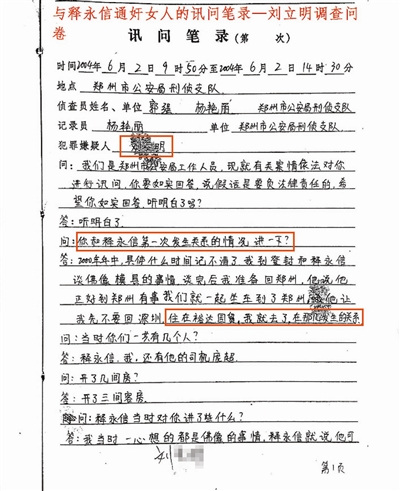 与释永信通奸女人的讯问笔录—刘立明调查问
卷
讯问笔录(第 次)
时间2004年6月2日9时50分至2004年6月2日14时30分
地点 郑州市公安局刑侦支队
侦查员姓名、单位 郭强 杨艳丽 郑州市公安局刑侦支队
记录员 杨艳丽 单位 郑州市公安局刑侦支队
犯罪嫌疑人 明
问：我们是郑州市公安局工作人员，现就有关案情依法对你
进行讯问，你要如实回答，说假话是要负法律责任的，希
望你如实回答，听明白了吗？
答：听明白了。
问：你和释永信第一次发生关系的情况讲一下？
答：2000年年中，具体什么时间记不清了。我到登封和释永信
谈佛像模具的事情，谈完后我准备回郑州，他说他
正好到郑州有事我们就一起坐车到了郑州，他让
我先不要回深圳，住在裕达国贸，我就去了，在那儿发生的关系
问：当时你们一共有几个人？
答：释永信、我，还有他的司机度超
问：开了几间房？
答：开了三间客房。
问：释永信当时对你讲了些什么？
答：我当时一心想的都是佛像的事情，释永信就说他可
刘
第1页